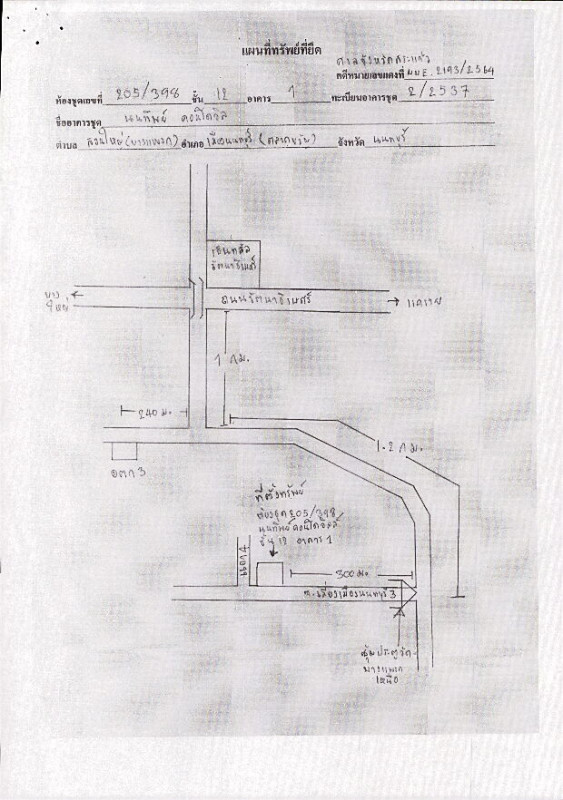 แผนที่ทรัพย์ที่ยึด
ศาลจังหวัดสระแก้ว
คดีหมายเลขแดงที่ ผบE. 2193/2564
ห้องชุดเลขที่ 205/398 ชั้น 12 อาคาร 1 ทะเบียนอาคารชุด 2/2537
ชื่ออาคารชุด นนทิพย์ คอนโดวิล
ตำบล สวนใหญ่ (บางแพรก) อำเภอ เมืองนนทบุรี (ตลาดขวัญ) จังหวัด นนทบุรี
เซ็นทรัล
รัตนาธิเบศร์
บาง
ใหญ่
ถนนรัตนาธิเบศร์
แคราย
1 กม.
240 ม.
1.2 กม.
อตก 3
ที่ตั้งทรัพย์
ห้องชุด 205/398
นนทิพย์คอนโดวิลล์
ชั้น 12 อาคาร 1
300 ม.
ถ.เลี่ยงเมืองนนทบุรี 3
ซุ้มประตูวัด
บางแพรก
เหนือ